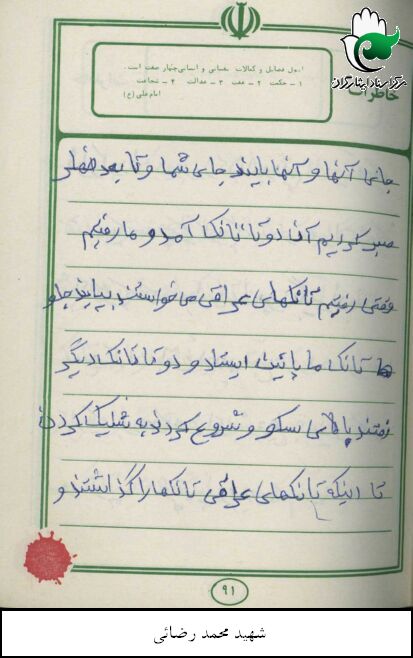 مرکز اسناد ایثارگران
خاطرات
اصول فضایل و کمالات نفسانی و انسانی چهار صفت است.
۱ - حکمت ۲ - عفت ۳ - عدالت ۴ - شجاعت
امام علی (ع)
جای آنها و آنها بایند جای شما و تا بعد ظهر
صبر کردیم آقا دو تا تانک آمد و ما رفتیم
وقتی رفتیم تانکهای عراقی می خواستند بیایند جلو
تانک ما پائین ایستاد و دو تا تانک دیگر
رفتند بالای سکو و شروع کردند به شلیک کردن
تا اینکه تانکهای عراقی تانکها را گذاشتند و
۹۱
شهید محمد رضائی